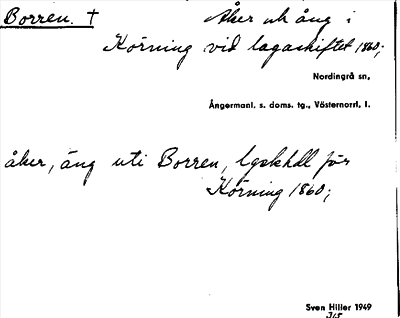 Borren. † Åker och äng i
Körning vid lagaskiftet 1860;
Nordingrå sn,
Ångermanl. s. doms. tg., Västernorrl. l.
åker, äng uti Borren, lgskhdl för
Körning 1860;
Sven Hiller 1949